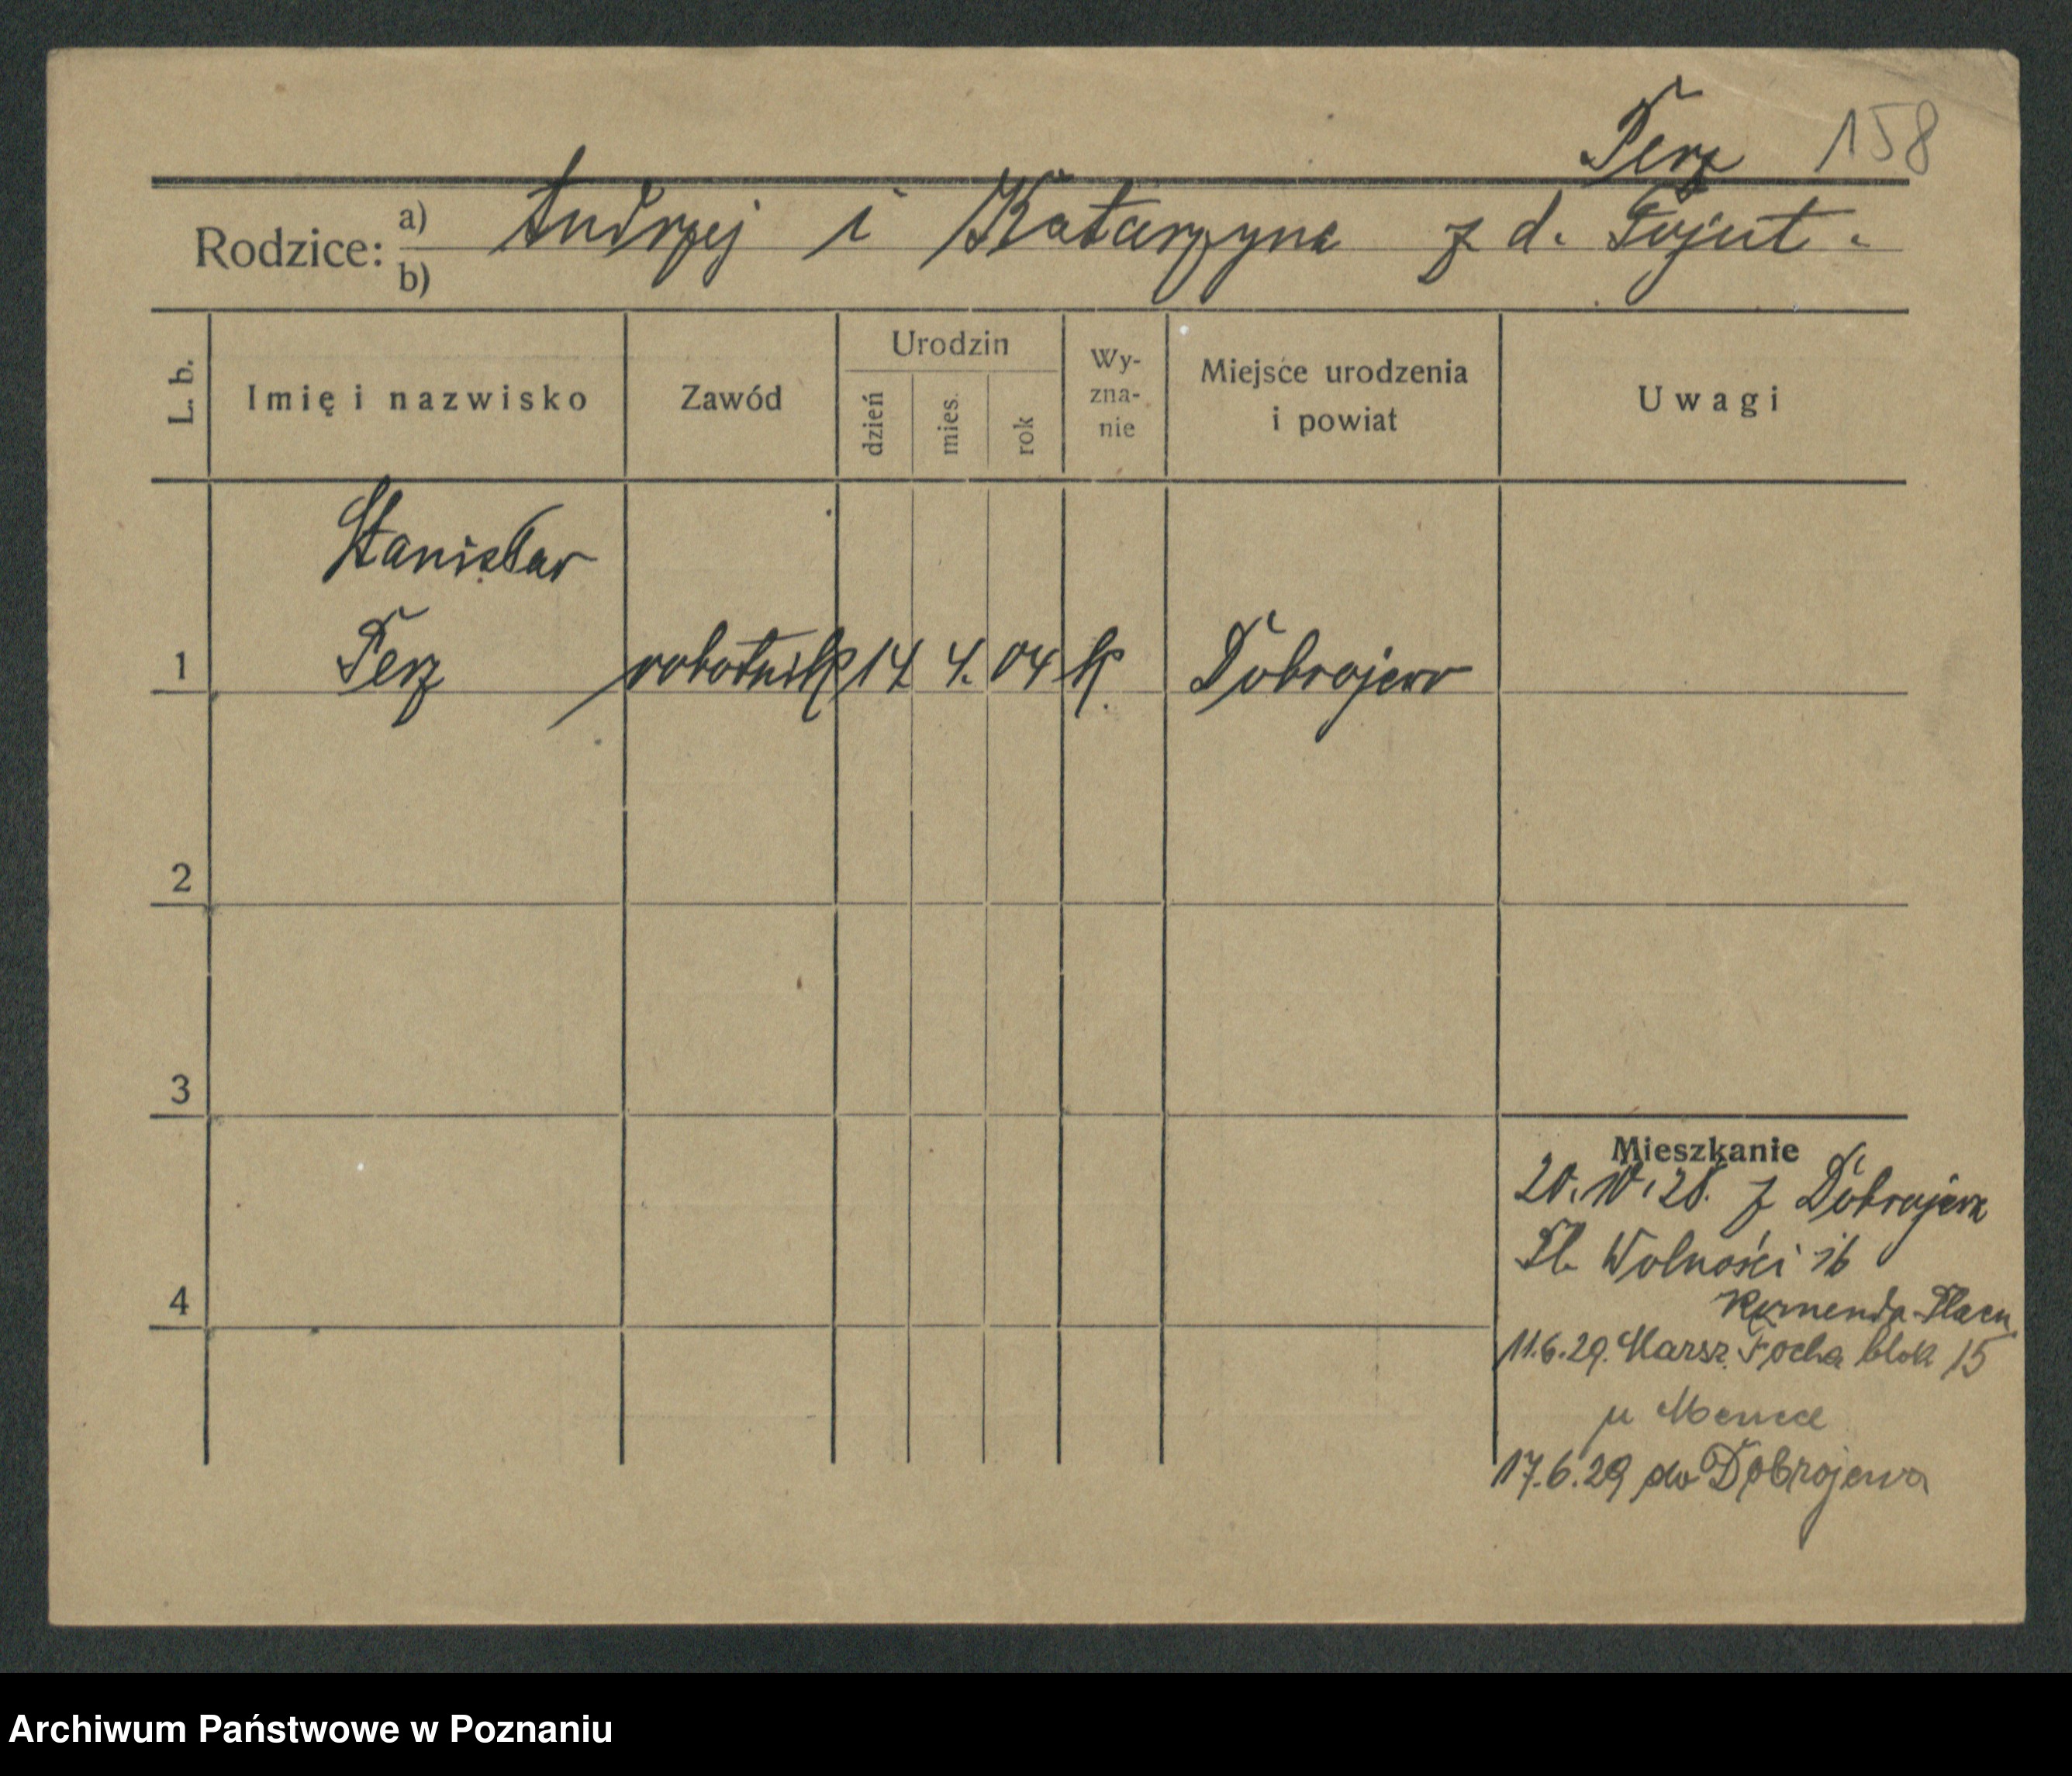 Perz 158
Rodzice: a) Andrzej i Katarzyna z d.
b)
L. b. Imię i nazwisko Zawód Urodzin dzień mies. rok Wy-zna-nie Miejsce urodzenia i powiat Uwagi
Stanisław
1 Perz robotnik 14 4. 04 k. Dobrojewo
2
3
Mieszkanie
20. 10. 28. z Dobrojewa
Pl. Wolności 16
4 Komenda Placu
11.6.29. Marsz. Focha blok 15
17.6.29 do Dobrojewa
Archiwum Państwowe w Poznaniu